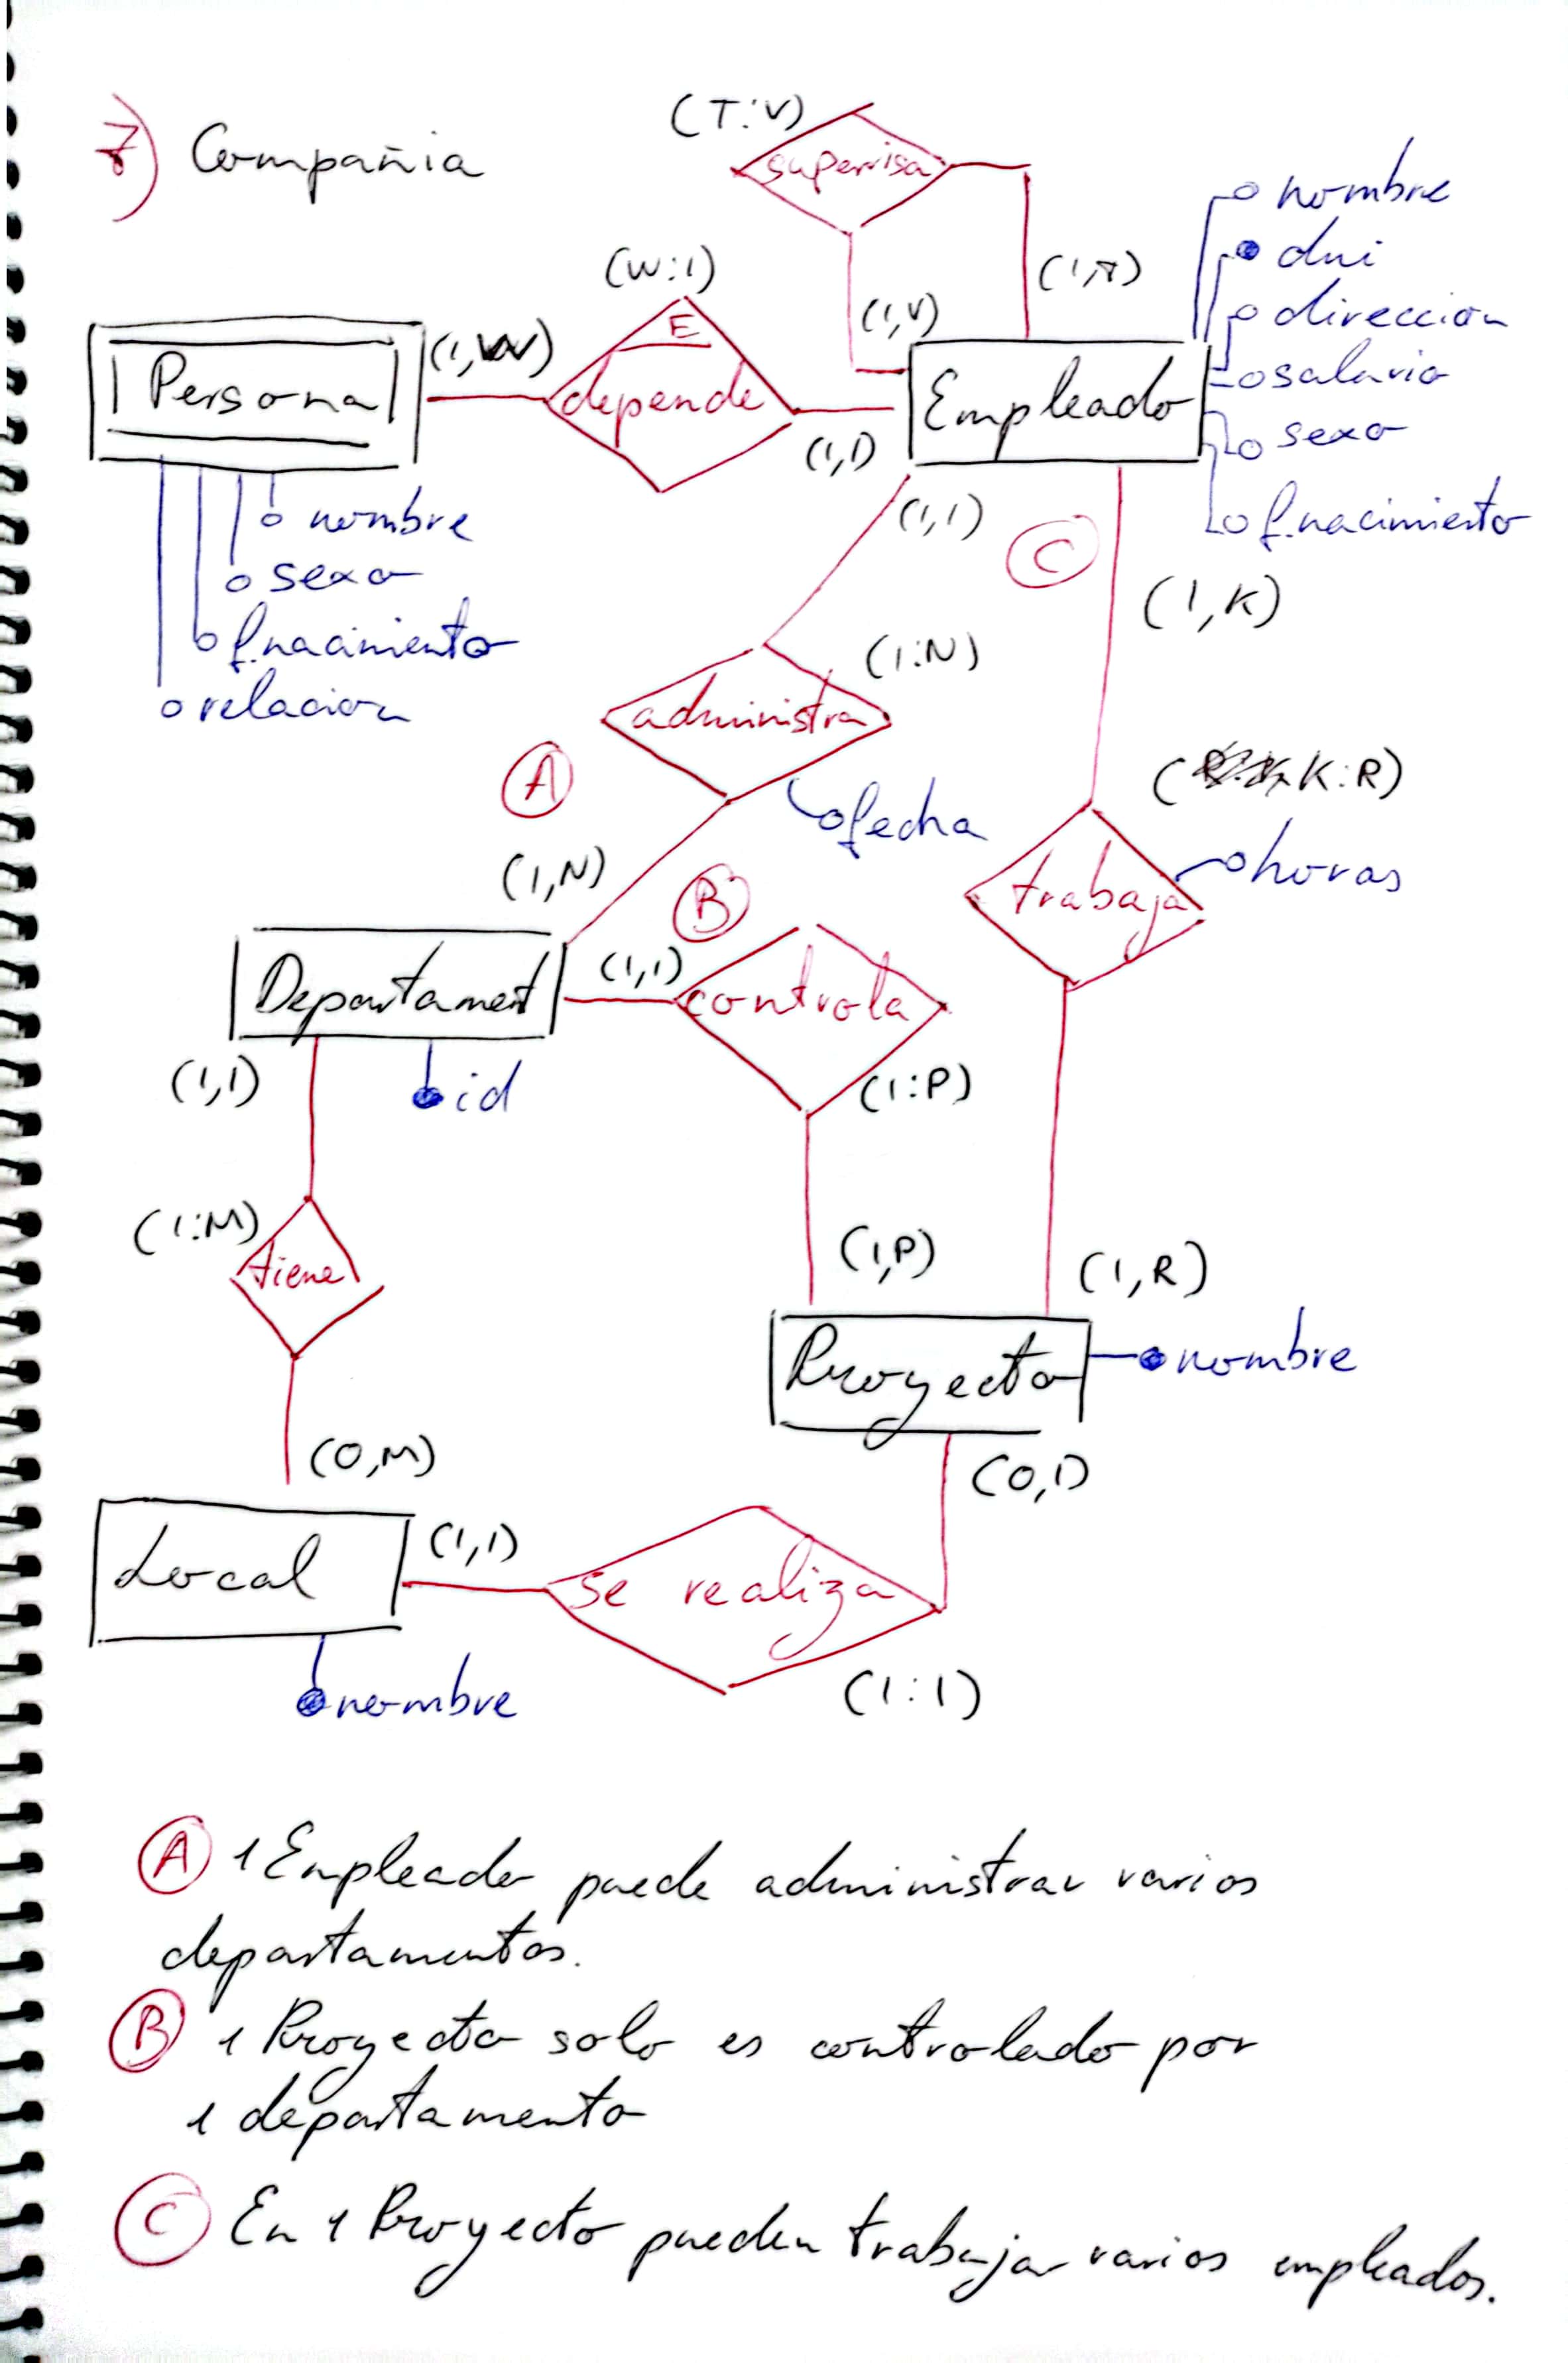 7) Compañia
(T:V)
supervisa
nombre
dni
direccion
salario
sexo
f.nacimiento
(W:1)
(1,V)
(1,T)
Persona
(1,W)
E
depende
(1,1)
Empleado
nombre
sexo
f.nacimiento
relacion
(1,1)
C
(1,K)
(1:N)
administra
A
fecha
(K:R)
trabaja
horas
(1,N)
B
Departament
(1,1)
controla
(1,1)
id
(1:P)
(1:M)
tiene
(1,P)
(1,R)
Proyecto
nombre
(0,M)
(0,1)
Local
(1,1)
se realiza
nombre
(1:1)
A 1 Empleado puede administrar varios
departamentos.
B 1 Proyecto solo es controlado por
1 departamento
C En 1 Proyecto pueden trabajar varios empleados.